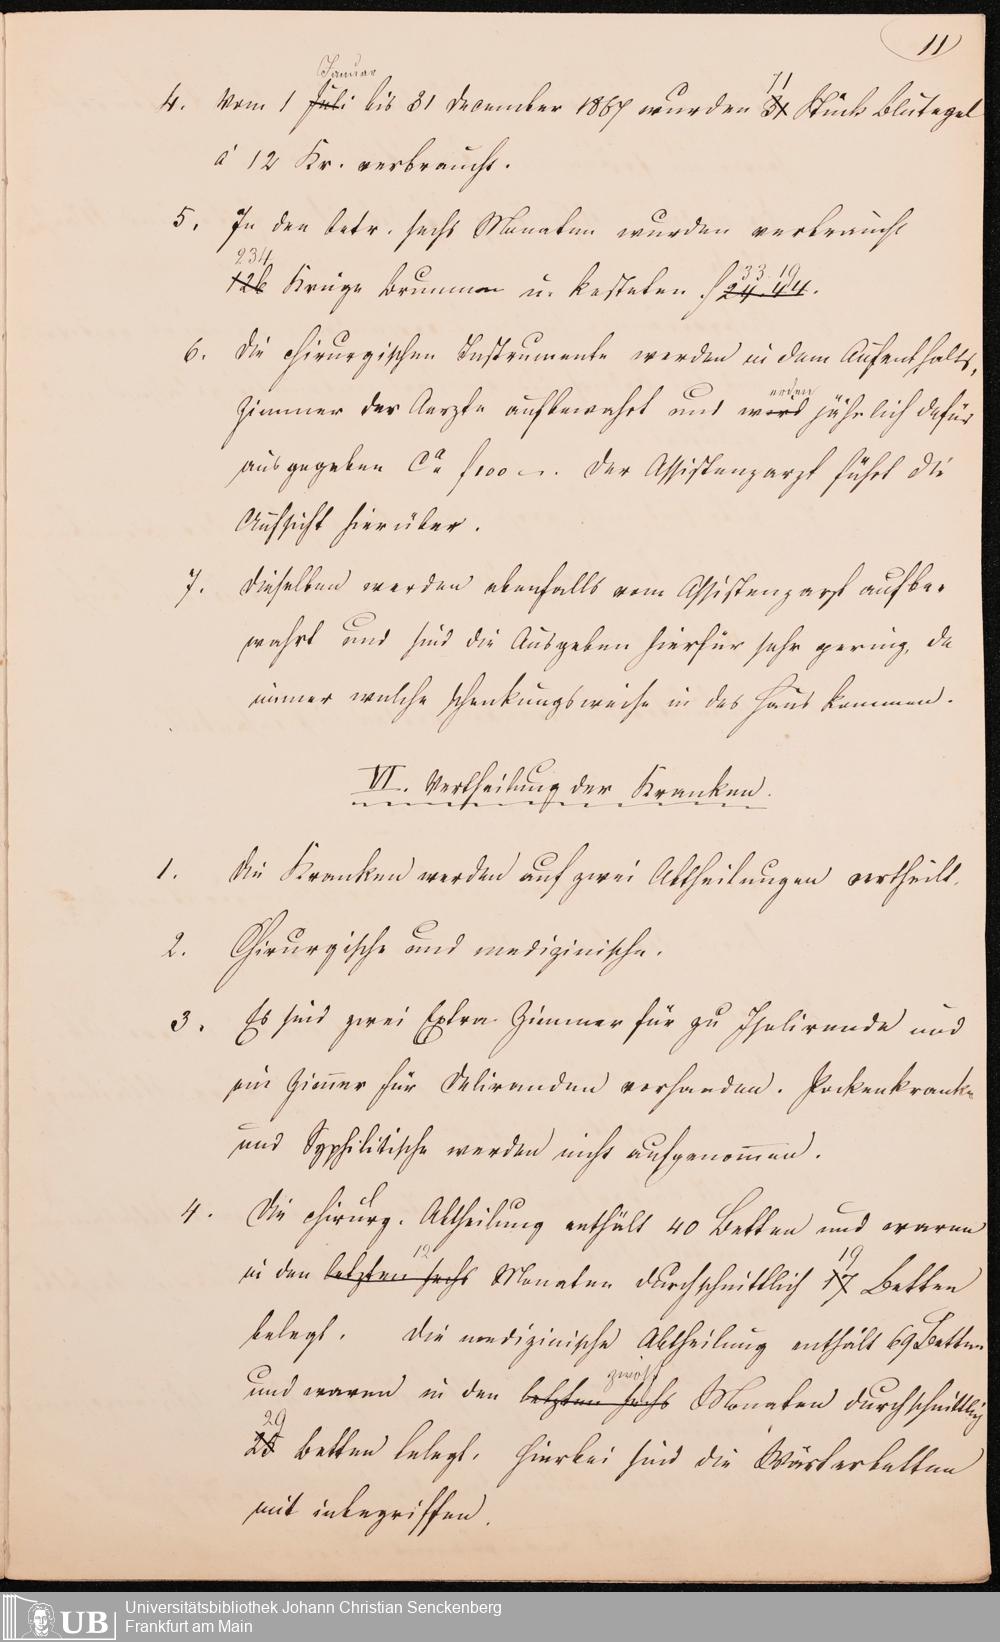 11
Januar
71
4. Vom 1 Juli bis 31 December 1867 wurden 31 Stück Blutegel
à 12 Kr. verbraucht.
5. In den betr. sechs Monaten wurden verbraucht
234
33. 19
126 Krüge Brunnen u. kosteten f 24.44.
6. Die chirurgischen Instrumente werden in dem Aufenthalts-
erden
Zimmer der Aerzte aufbewahrt und wird jährlich dafür
ausgegeben Ca f 100 –. Der Assistenzarzt führt die
Aufsicht hierüber.
7. Dieselben werden ebenfalls vom Assistenzarzt aufbe-
wahrt und sind die Ausgaben hierfür sehr gering, da
immer welche schenkungsweise in das Haus kommen.
VI. Vertheilung der Kranken.
1. Die Kranken werden auf zwei Abtheilungen vertheilt.
2. Chirurgische und medizinische.
3. Es sind zwei Extra Zimmer für zu Isolirende und
ein Zimmer für Deliranden vorhanden. Pockenkranke
und Syphilitische werden nicht aufgenommen.
4. Die chirurg. Abtheilung enthält 40 Betten und waren
12
19
in den letzten sechs Monaten durchschnittlich 17 Betten
belegt. Die medizinische Abtheilung enthält 69 Betten
zwölf
und waren in den letzten sechs Monaten durchschnittlich
29
25 Betten belegt. Hierbei sind die Wärterbetten
mit inbegriffen.
UB
Universitätsbibliothek Johann Christian Senckenberg
Frankfurt am Main